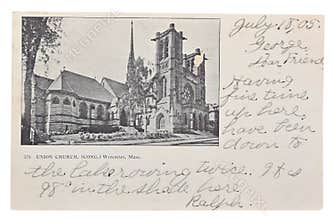 July 18, 05.
George,
Dear Friend
Having
fine time
up here,
have been
down to
the Lake rowing twice. It is
98° in the shade here.
Ralph.
UNION CHURCH, (CONG.) Worcester, Mass.